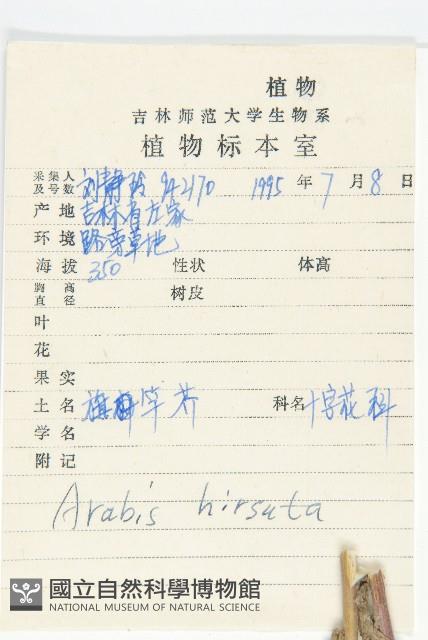 植物
吉林师范大学生物系
植物标本室
采集人及号数 刘静玻 942170 1995 年 7 月 8 日
产地 吉林省左家
环境 路旁草地
海拔 350 性状 体高
胸高直径 树皮
叶
花
果实
土名 旗杆芥 科名 十字花科
学名
附记
Arabis hirsuta
國立自然科學博物館
NATIONAL MUSEUM OF NATURAL SCIENCE